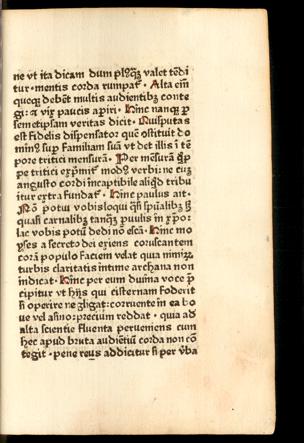 ne vt ita dicam dum plꝰqȝ valet tēdi
tur · mentis corda rumpāt · Alta em̄
queqȝ debēt multis audientibȝ conte
gi: ⁊ vix paucis apiri · Hinc nanqȝ ꝑ
semetipsam veritas dicit · Nusputas
est fidelis dispensator quē ostituit do
minꝰ sup familiam suā vt det illis ī tē
pore tritici mensurā · Per mēsurā
pe tritici exp̄mit modꝰ verbi: ne cuȝ
angusto cordi incapibile aliqd tribu
itur extra fundat · Hinc paulus ait ·
Nō potui vobis loqui qsi spūalibȝ sȝ
quasi carnalibȝ tanqȝ puulis in xp̄o ·
lac vobis potū dedi nō escā · Hinc mo
yses a secreto dei exiens coruscantem
corā populo faciem velat quia nimiȝ
turbis claritatis intime archana non
indicat · Hinc per eum diuina voce p̄
cipitur vt hijs qui cisternam foderit
si operire negligat: corruente in ea bo
ue vel asino: precium reddat · quia ad
alta scientie fluenta perueniens cum
hec apud bruta audiētiū corda non cō
tegit · pene reus addicitur si per vba